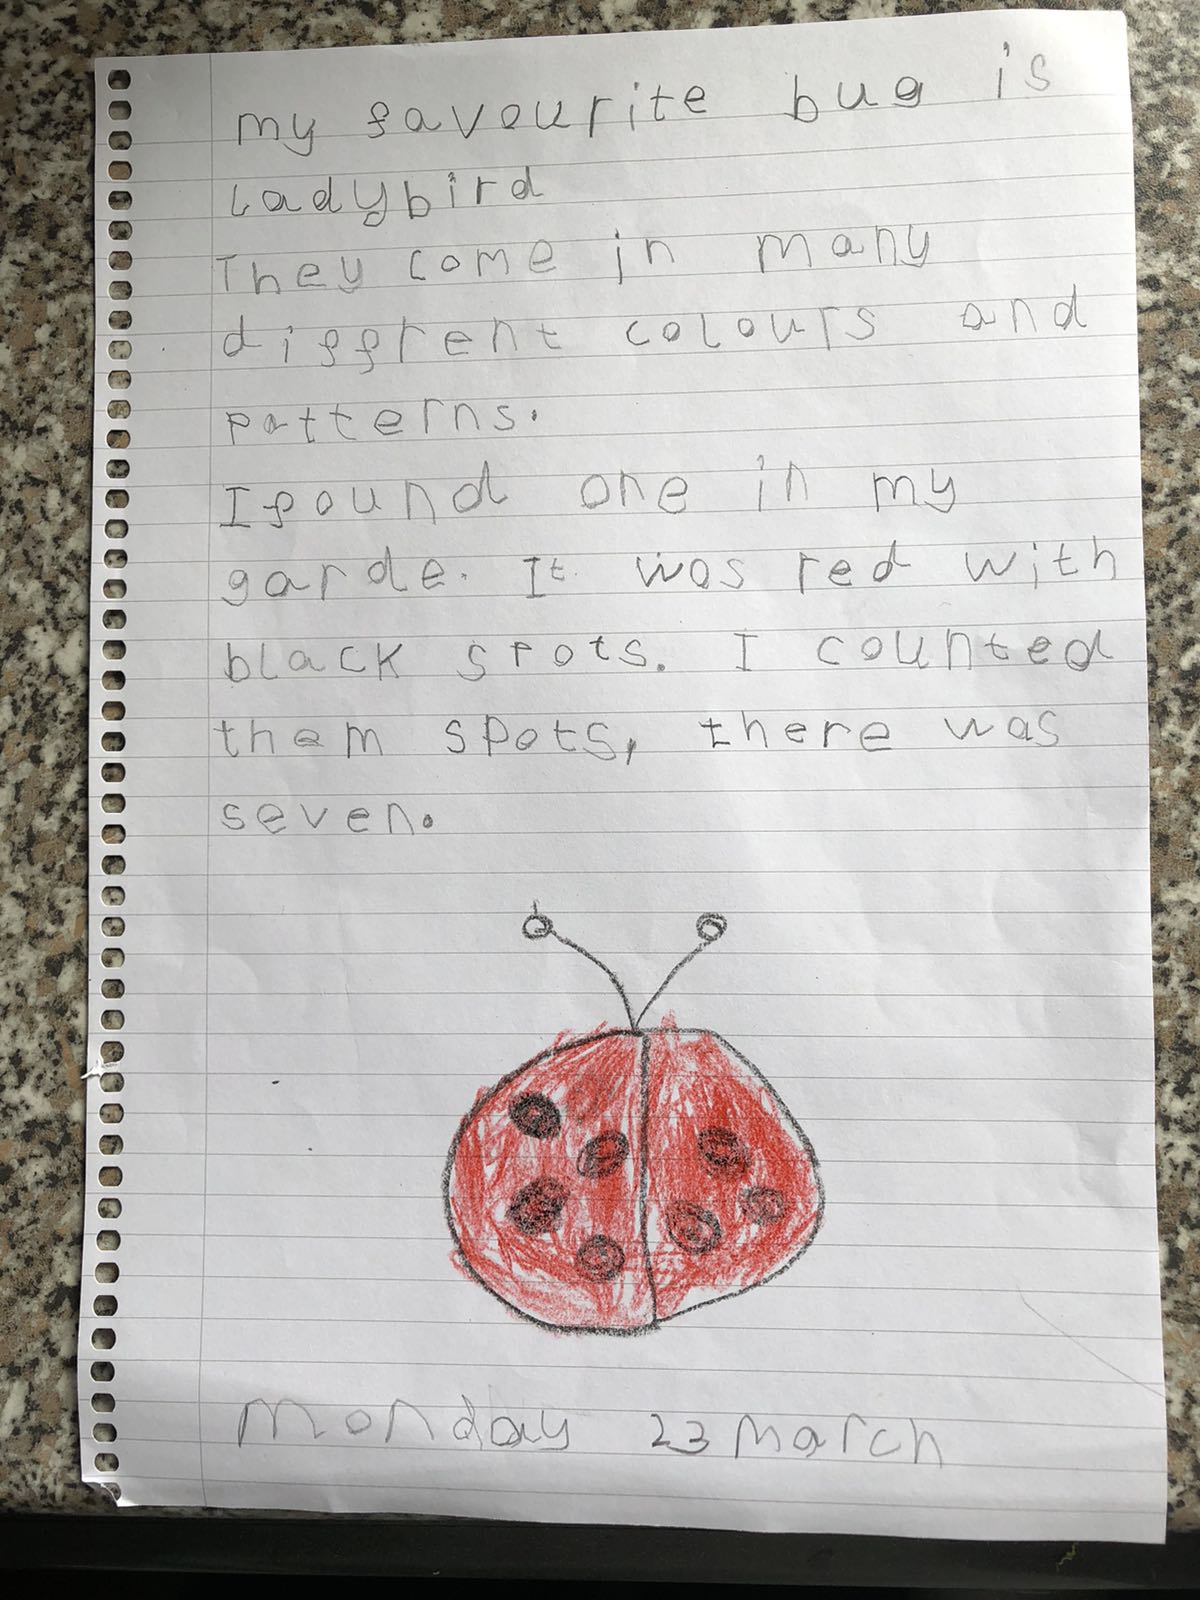 my favourite bug is
Ladybird
They come in many
diffrent colours and
patterns.
I found one in my
garde. It was red with
black spots. I counted
them spots, there was
seven.
Monday 23 March